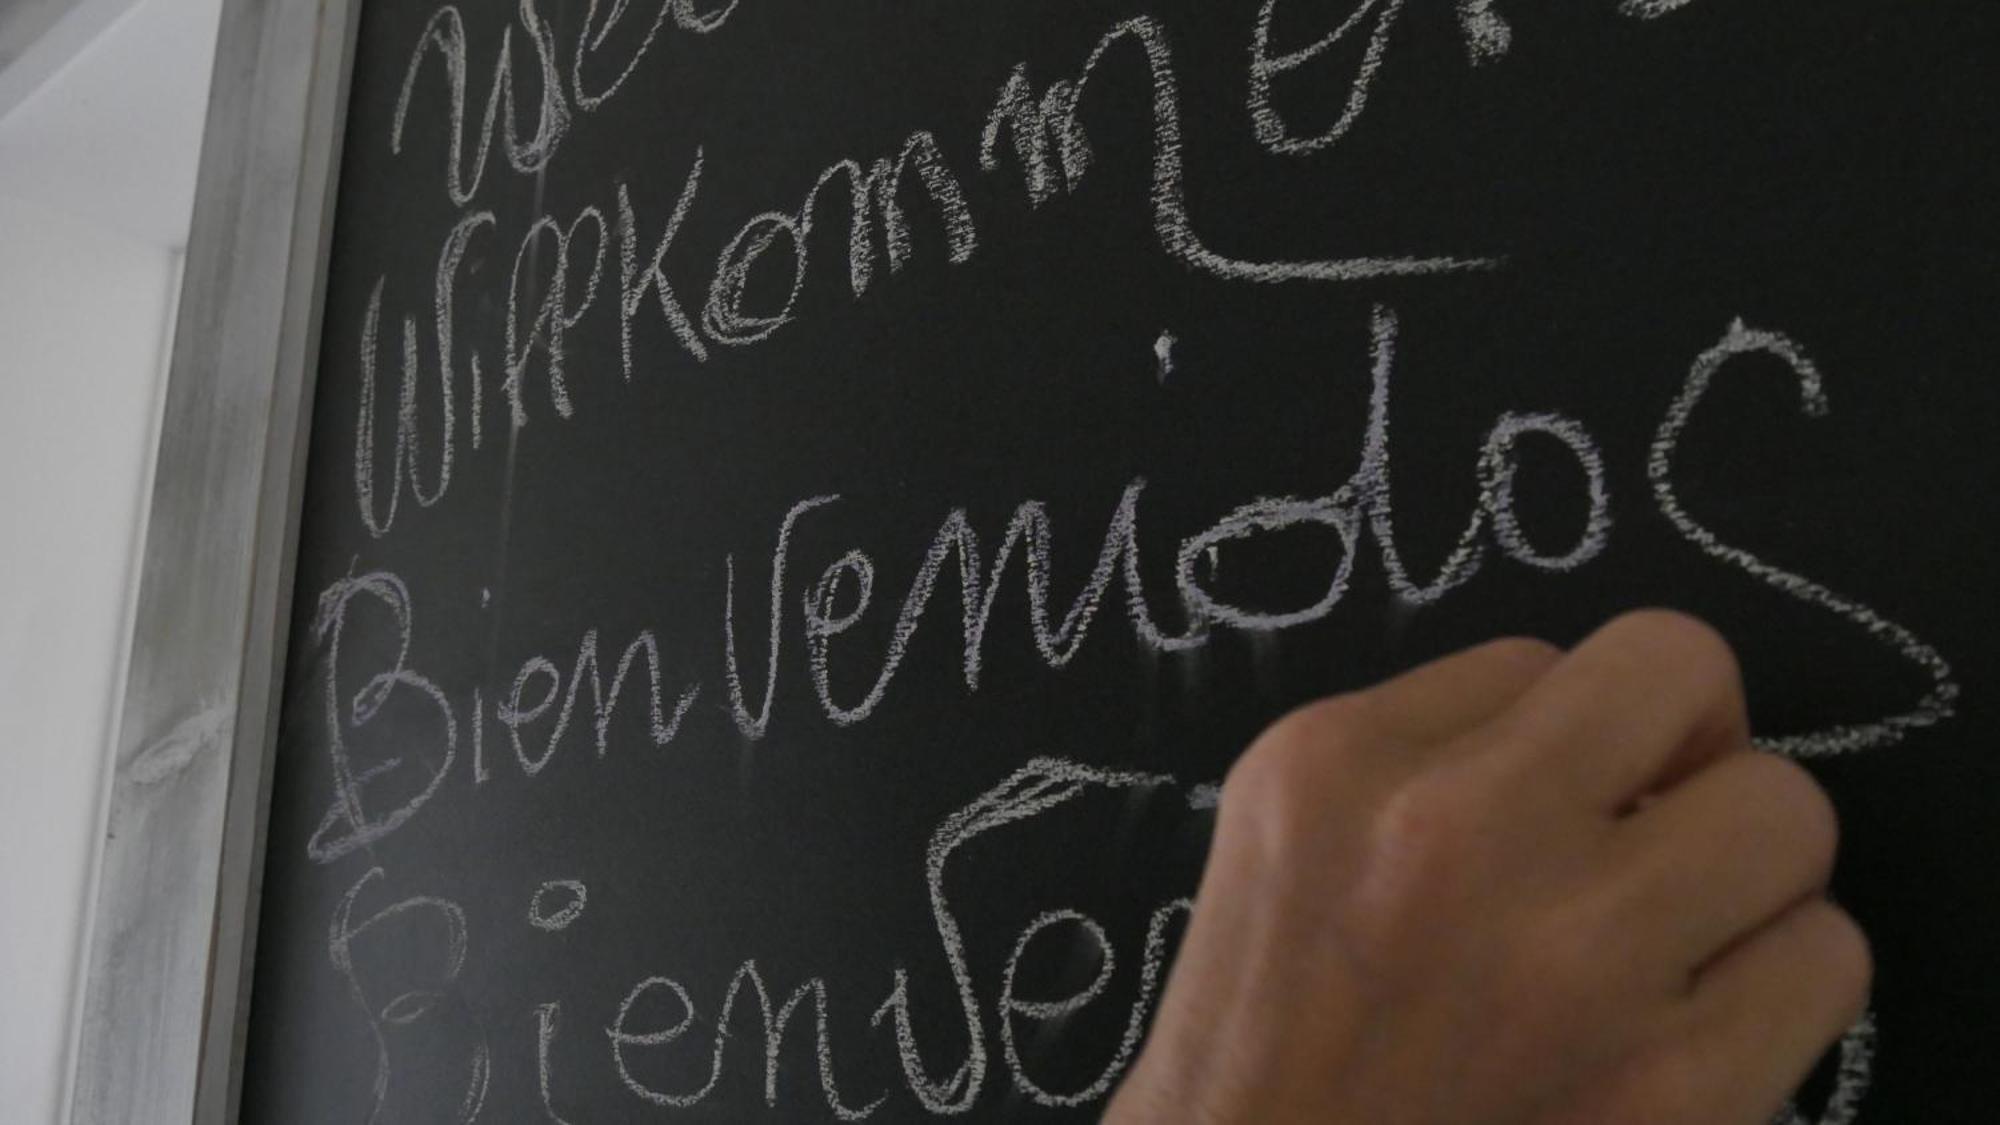 We
Willkommen
Bienvenidos
Bienve